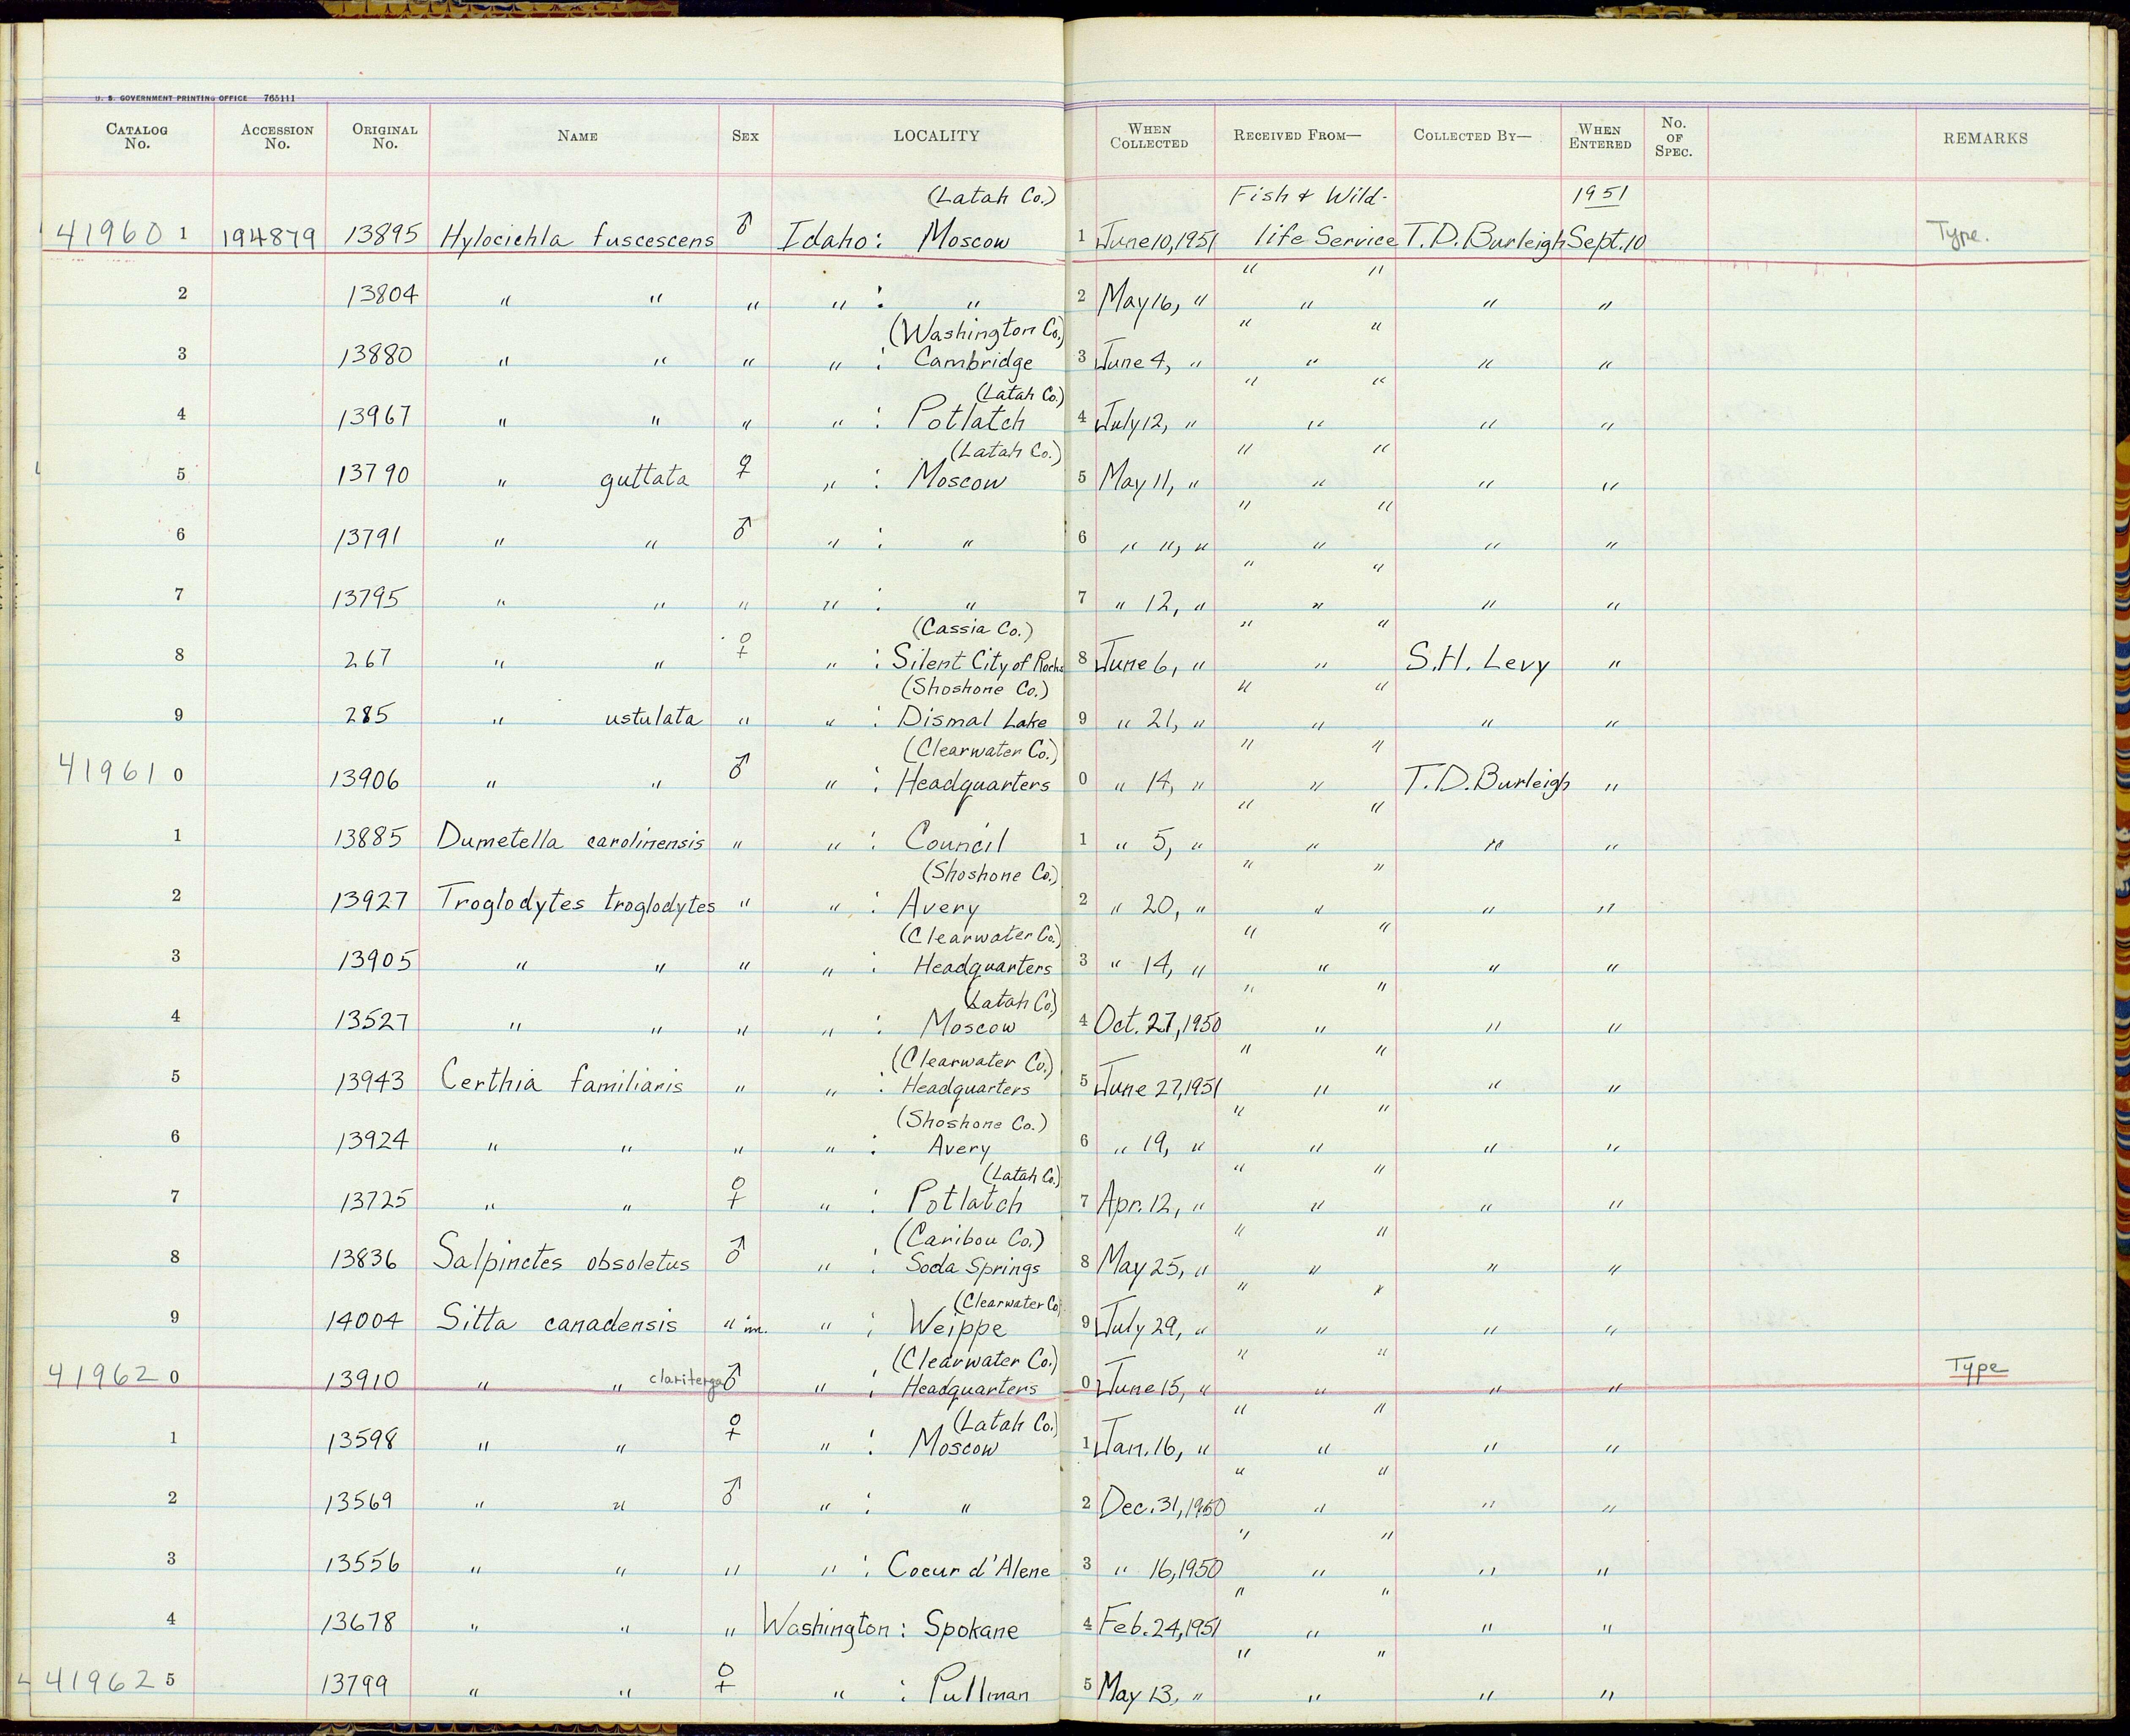 U. S. GOVERNMENT PRINTING OFFICE 765111
CATALOG No. ACCESSION No. ORIGINAL No. NAME SEX LOCALITY WHEN COLLECTED RECEIVED FROM— COLLECTED BY— WHEN ENTERED No. OF SPEC. REMARKS
(Latah Co.) Fish & Wild- 1951
41960 1 194879 13895 Hylocichla fuscescens ♂ Idaho: Moscow 1 June 10, 1951 life Service T.D. Burleigh Sept. 10 Type.
" "
2 13804 " " " " : " 2 May 16, " " " "
(Washington Co.) " "
3 13880 " " " " : Cambridge 3 June 4, " " " "
(Latah Co.) " "
4 13967 " " " " : Potlatch 4 July 12, " " " "
(Latah Co.) " "
5 13790 " guttata ♀ " : Moscow 5 May 11, " " " "
" "
6 13791 " " ♂ " : " 6 " ", " " " "
" "
7 13795 " " " " : " 7 " 12, " " " "
(Cassia Co.) " "
8 267 " " ♀ " : Silent City of Rocks 8 June 6, " " S.H. Levy "
(Shoshone Co.) " "
9 285 " ustulata " " : Dismal Lake 9 " 21, " " " "
(Clearwater Co.) " "
41961 0 13906 " " ♂ " : Headquarters 0 " 14, " " T.D. Burleigh "
" "
1 13885 Dumetella carolinensis " " : Council 1 " 5, " " " "
(Shoshone Co.) " "
2 13927 Troglodytes troglodytes " " : Avery 2 " 20, " " " "
(Clearwater Co.) " "
3 13905 " " " " : Headquarters 3 " 14, " " " "
(Latah Co.) " "
4 13527 " " " " : Moscow 4 Oct. 27, 1950 " " "
(Clearwater Co.) " "
5 13943 Certhia familiaris " " : Headquarters 5 June 27, 1951 " " "
(Shoshone Co.) " "
6 13924 " " " " : Avery 6 " 19, " " " "
(Latah Co.) " "
7 13725 " " ♀ " : Potlatch 7 Apr. 12, " " " "
(Caribou Co.) " "
8 13836 Salpinctes obsoletus ♂ " : Soda Springs 8 May 25, " " " "
(Clearwater Co. " "
9 14004 Sitta canadensis " im. " : Weippe 9 July 29, " " " "
(Clearwater Co.) " "
41962 0 13910 " " clariterga ♂ " : Headquarters 0 June 15, " " " " Type
(Latah Co.) " "
1 13598 " " ♀ " : Moscow 1 Jan. 16, " " " "
" "
2 13569 " " ♂ " : " 2 Dec. 31, 1950 " " "
" "
3 13556 " " " " : Coeur d'Alene 3 " 16, 1950 " " "
" "
4 13678 " " " Washington : Spokane 4 Feb. 24, 1951 " " "
" "
41962 5 13799 " " ♀ " : Pullman 5 May 13, " " " "